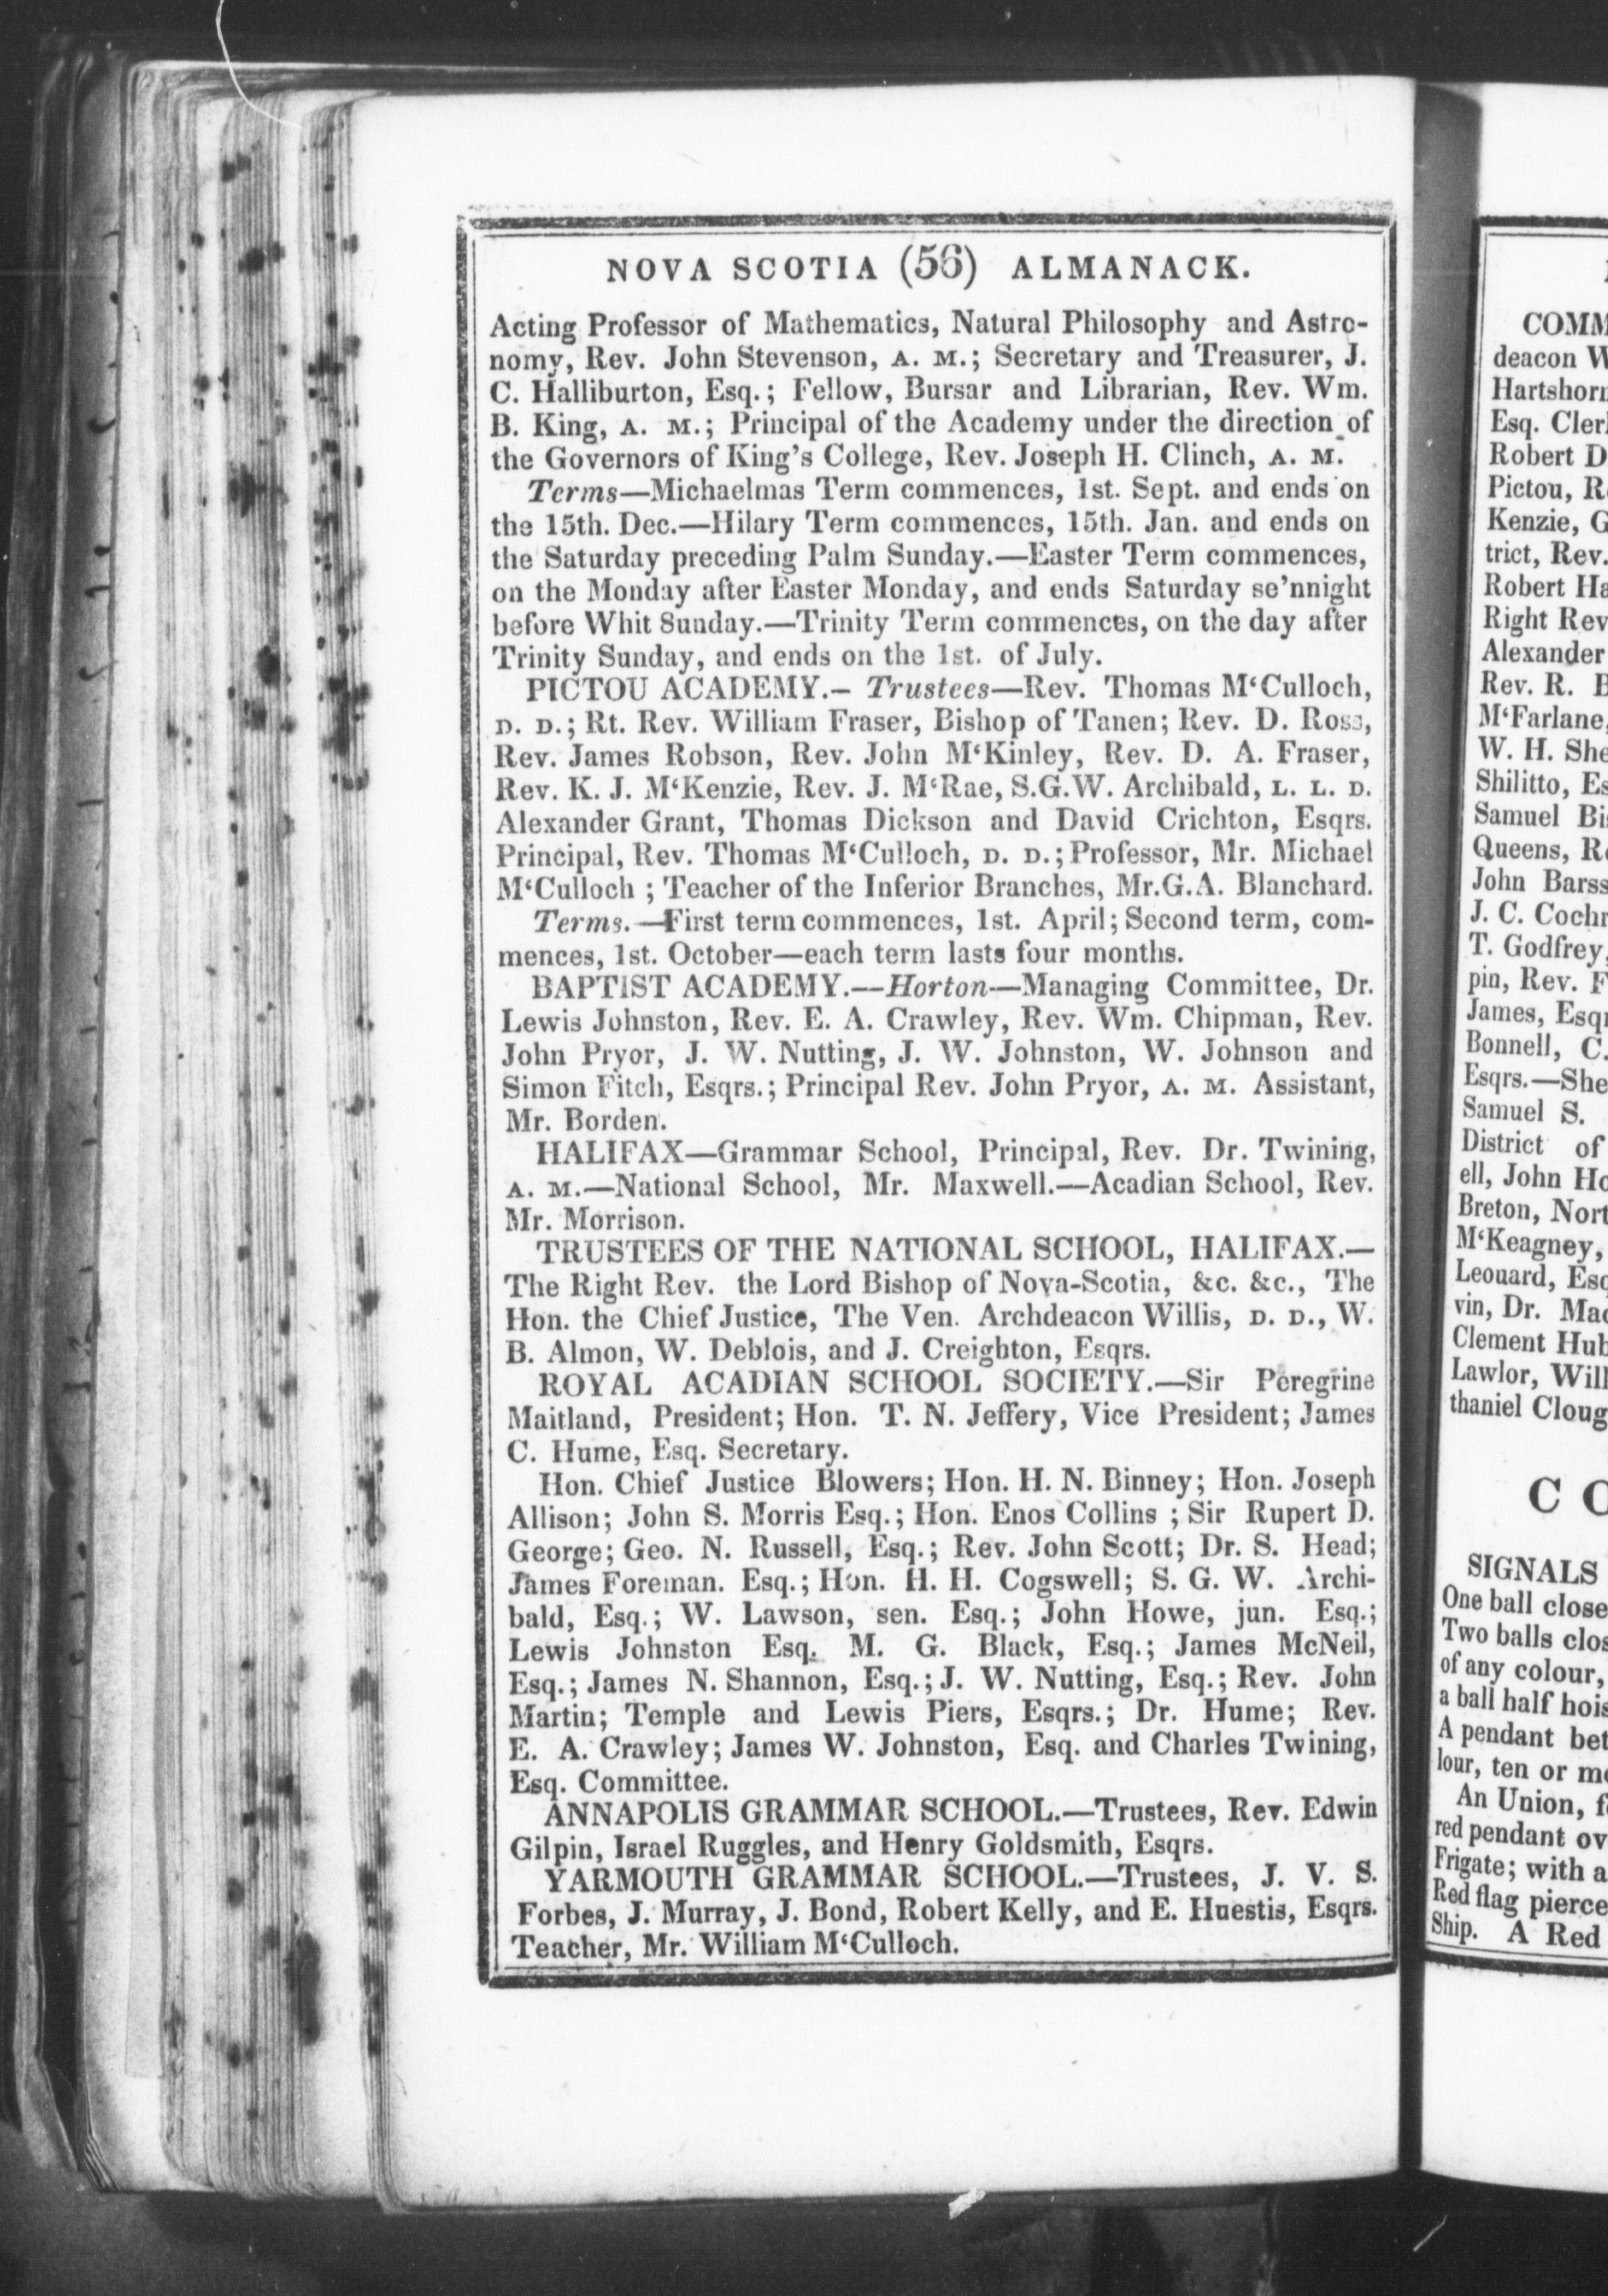 NOVA SCOTIA (56) ALMANACK.
Acting Professor of Mathematics, Natural Philosophy and Astro-
nomy, Rev. John Stevenson, A. M.; Secretary and Treasurer, J.
C. Halliburton, Esq.; Fellow, Bursar and Librarian, Rev. Wm.
B. King, A. M.; Principal of the Academy under the direction of
the Governors of King's College, Rev. Joseph H. Clinch, A. M.
Terms—Michaelmas Term commences, 1st. Sept. and ends on
the 15th. Dec.—Hilary Term commences, 15th. Jan. and ends on
the Saturday preceding Palm Sunday.—Easter Term commences,
on the Monday after Easter Monday, and ends Saturday se'nnight
before Whit Sunday.—Trinity Term commences, on the day after
Trinity Sunday, and ends on the 1st. of July.
PICTOU ACADEMY.- Trustees—Rev. Thomas M‘Culloch,
D. D.; Rt. Rev. William Fraser, Bishop of Tanen; Rev. D. Ross,
Rev. James Robson, Rev. John M‘Kinley, Rev. D. A. Fraser,
Rev. K. J. M‘Kenzie, Rev. J. M‘Rae, S.G.W. Archibald, L. L. D.
Alexander Grant, Thomas Dickson and David Crichton, Esqrs.
Principal, Rev. Thomas M‘Culloch, D. D.; Professor, Mr. Michael
M‘Culloch ; Teacher of the Inferior Branches, Mr.G.A. Blanchard.
Terms.—First term commences, 1st. April; Second term, com-
mences, 1st. October—each term lasts four months.
BAPTIST ACADEMY.—Horton—Managing Committee, Dr.
Lewis Johnston, Rev. E. A. Crawley, Rev. Wm. Chipman, Rev.
John Pryor, J. W. Nutting, J. W. Johnston, W. Johnson and
Simon Fitch, Esqrs.; Principal Rev. John Pryor, A. M. Assistant,
Mr. Borden.
HALIFAX—Grammar School, Principal, Rev. Dr. Twining,
A. M.—National School, Mr. Maxwell.—Acadian School, Rev.
Mr. Morrison.
TRUSTEES OF THE NATIONAL SCHOOL, HALIFAX.—
The Right Rev. the Lord Bishop of Nova-Scotia, &c. &c., The
Hon. the Chief Justice, The Ven. Archdeacon Willis, D. D., W.
B. Almon, W. Deblois, and J. Creighton, Esqrs.
ROYAL ACADIAN SCHOOL SOCIETY.—Sir Peregrine
Maitland, President; Hon. T. N. Jeffery, Vice President; James
C. Hume, Esq. Secretary.
Hon. Chief Justice Blowers; Hon. H. N. Binney; Hon. Joseph
Allison; John S. Morris Esq.; Hon. Enos Collins ; Sir Rupert D.
George; Geo. N. Russell, Esq.; Rev. John Scott; Dr. S. Head;
James Foreman. Esq.; Hon. H. H. Cogswell; S. G. W. Archi-
bald, Esq.; W. Lawson, sen. Esq.; John Howe, jun. Esq.;
Lewis Johnston Esq. M. G. Black, Esq.; James McNeil,
Esq.; James N. Shannon, Esq.; J. W. Nutting, Esq.; Rev. John
Martin; Temple and Lewis Piers, Esqrs.; Dr. Hume; Rev.
E. A. Crawley; James W. Johnston, Esq. and Charles Twining,
Esq. Committee.
ANNAPOLIS GRAMMAR SCHOOL.—Trustees, Rev. Edwin
Gilpin, Israel Ruggles, and Henry Goldsmith, Esqrs.
YARMOUTH GRAMMAR SCHOOL.—Trustees, J. V. S.
Forbes, J. Murray, J. Bond, Robert Kelly, and E. Huestis, Esqrs.
Teacher, Mr. William M‘Culloch.
COMM
deacon W
Hartshorn
Esq. Cler
Robert D
Pictou, R
Kenzie, G
trict, Rev.
Robert Ha
Right Rev
Alexander
Rev. R. B
M‘Farlane,
W. H. She
Shilitto, Es
Samuel Bi
Queens, R
John Barss
J. C. Cochr
T. Godfrey,
pin, Rev. F
James, Esq
Bonnell, C.
Esqrs.—She
Samuel S.
District of
ell, John Ho
Breton, Nort
M‘Keagney,
Leouard, Esq
vin, Dr. Mac
Clement Hub
Lawlor, Will
thaniel Cloug
C O
SIGNALS
One ball close
Two balls clos
of any colour,
a ball half hois
A pendant bet
lour, ten or mo
An Union, f
red pendant ov
Frigate; with a
Red flag pierce
Ship. A Red